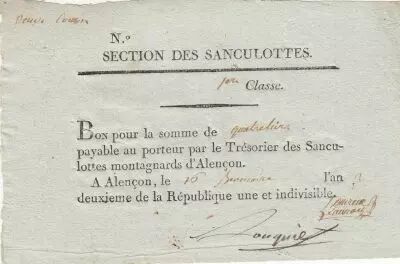 N.º
SECTION DES SANCULOTTES.
1ere Classe.
Bon pour la somme de quatre livres
payable au porteur par le Trésorier des Sancu-
lottes montagnards d'Alençon.
A Alençon, le 16 l'an
deuxieme de la République une et indivisible.